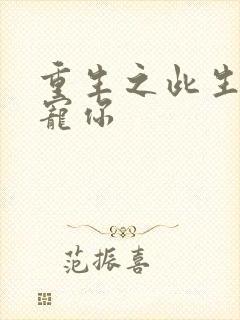 重生之此生
寵你
范振喜